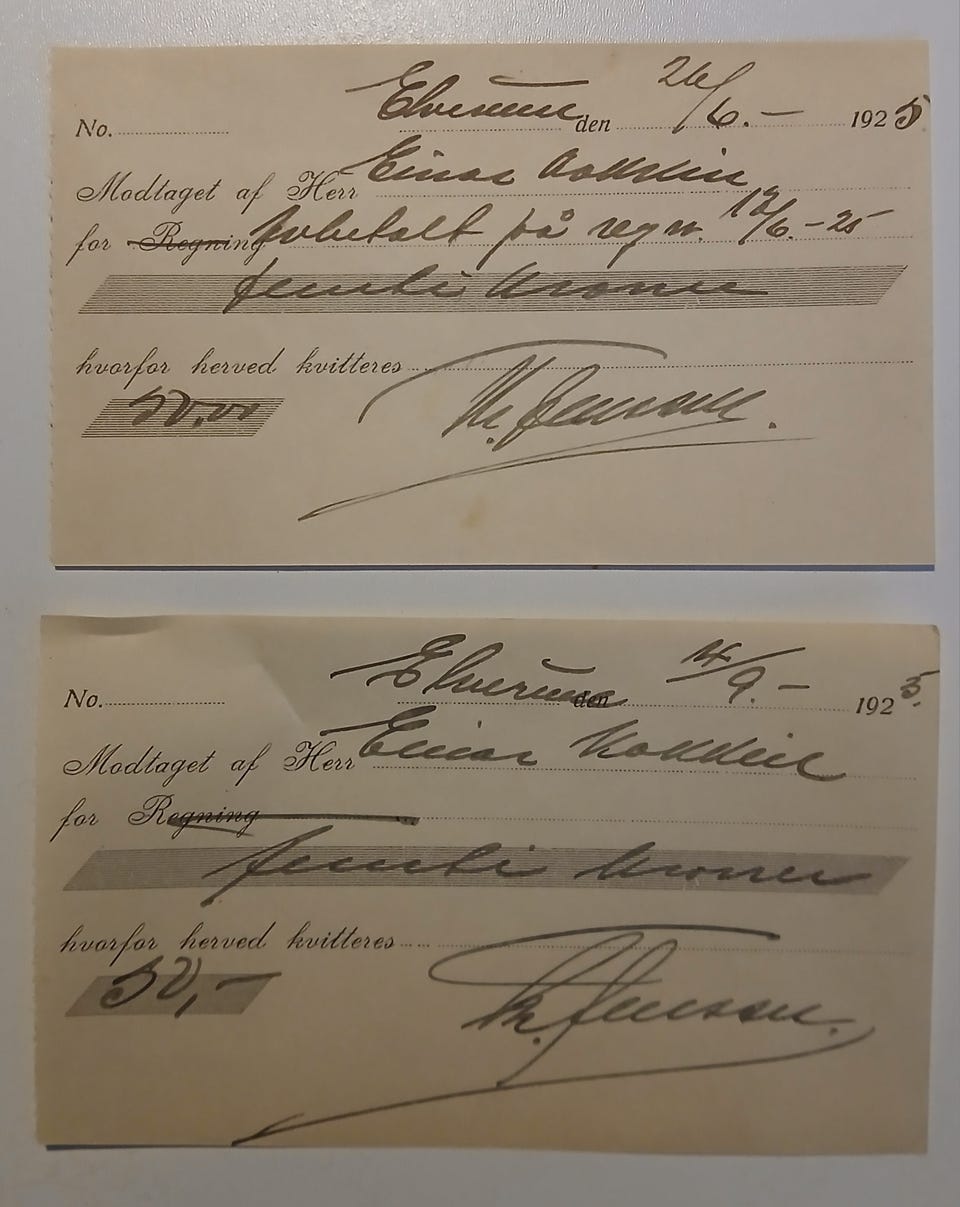 No. Elverum den 26/6.- 1925
Modtaget af Herr Einar
for Regning Avbetalt på regn. 12/6.-25
femti kroner
hvorfor herved kvitteres
50.00 Jensen.
No. Elverum den 14/9.- 1925.
Modtaget af Herr Einar
for Regning
femti kroner
hvorfor herved kvitteres
50,- Jensen.